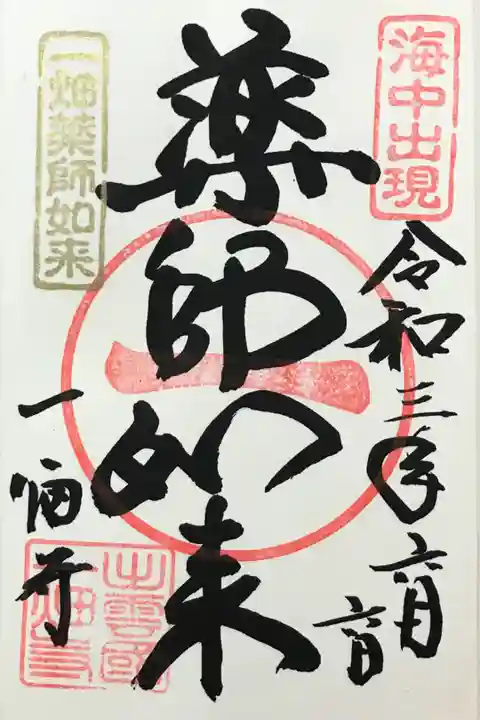 海中出現
令和三年六月六日
薬師如来
一
一畑薬師如来
一畑寺
出雲國
一畑寺